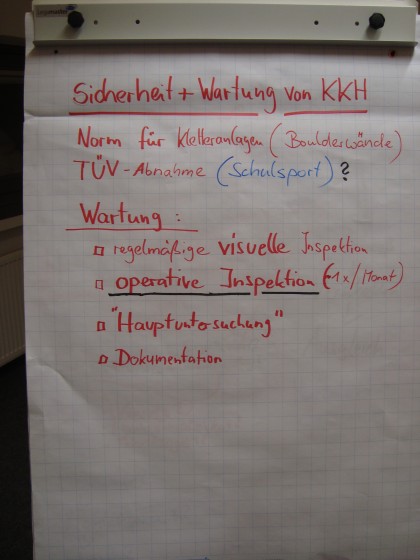 Sicherheit + Wartung von KKH
Norm für Kletteranlagen (Boulderwände)
TÜV - Abnahme (Schulsport) ?
Wartung :
regelmäßige visuelle Inspektion
operative Inspektion (~1x/Monat)
"Hauptuntersuchung"
Dokumentation